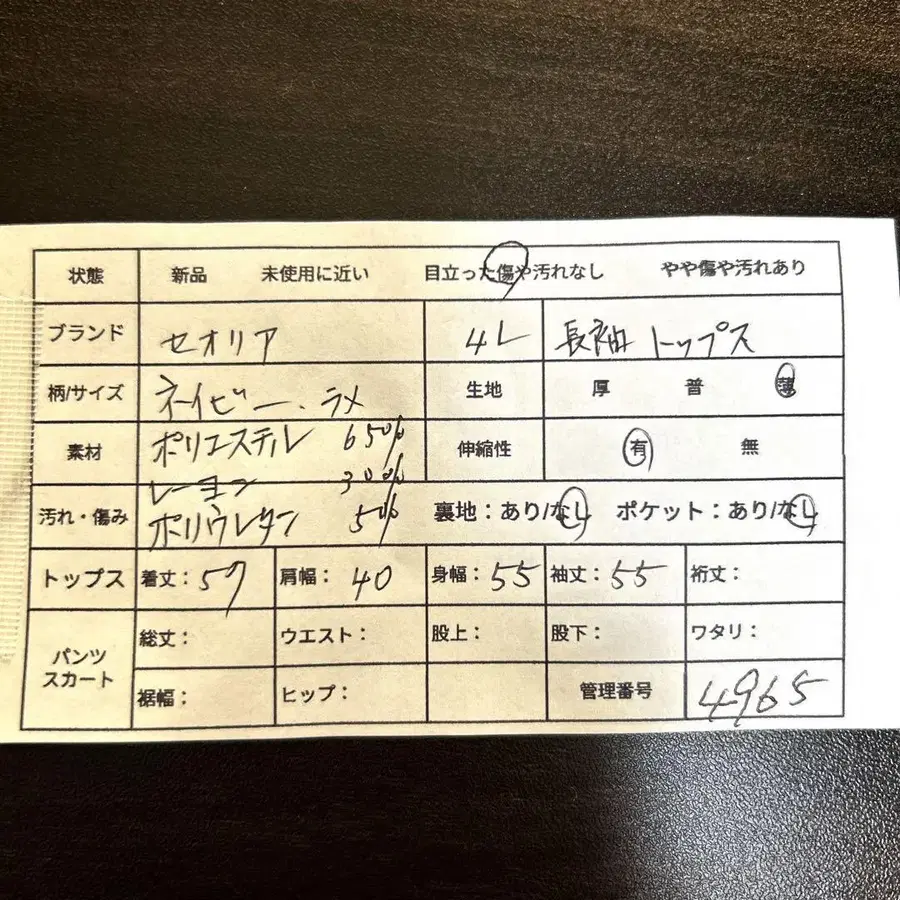 状態 新品 未使用に近い 目立った傷や汚れなし やや傷や汚れあり
ブランド セオリア 4L 長袖 トップス
柄/サイズ ネイビー.ラメ 生地 厚 普 薄
素材 ポリエステル 65% 伸縮性 有 無
レーヨン 30%
汚れ・傷み ポリウレタン 5% 裏地:あり/なし ポケット:あり/なし
トップス 着丈:57 肩幅:40 身幅:55 袖丈:55 裄丈:
パンツ スカート 総丈: ウエスト: 股上: 股下: ワタリ:
裾幅: ヒップ: 管理番号 4965